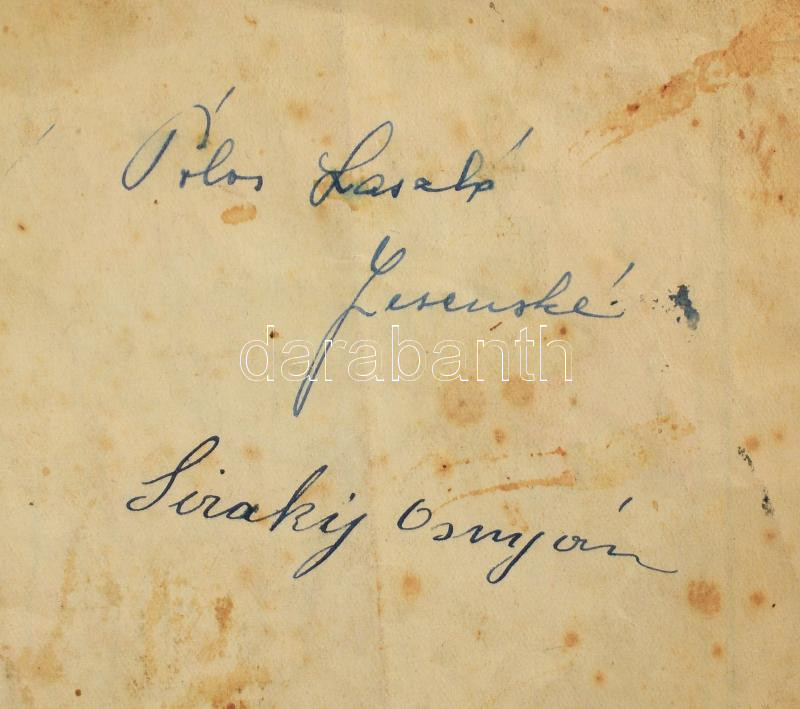 Pólos László
Jesenské.
darabanth
Siraky Osnyán